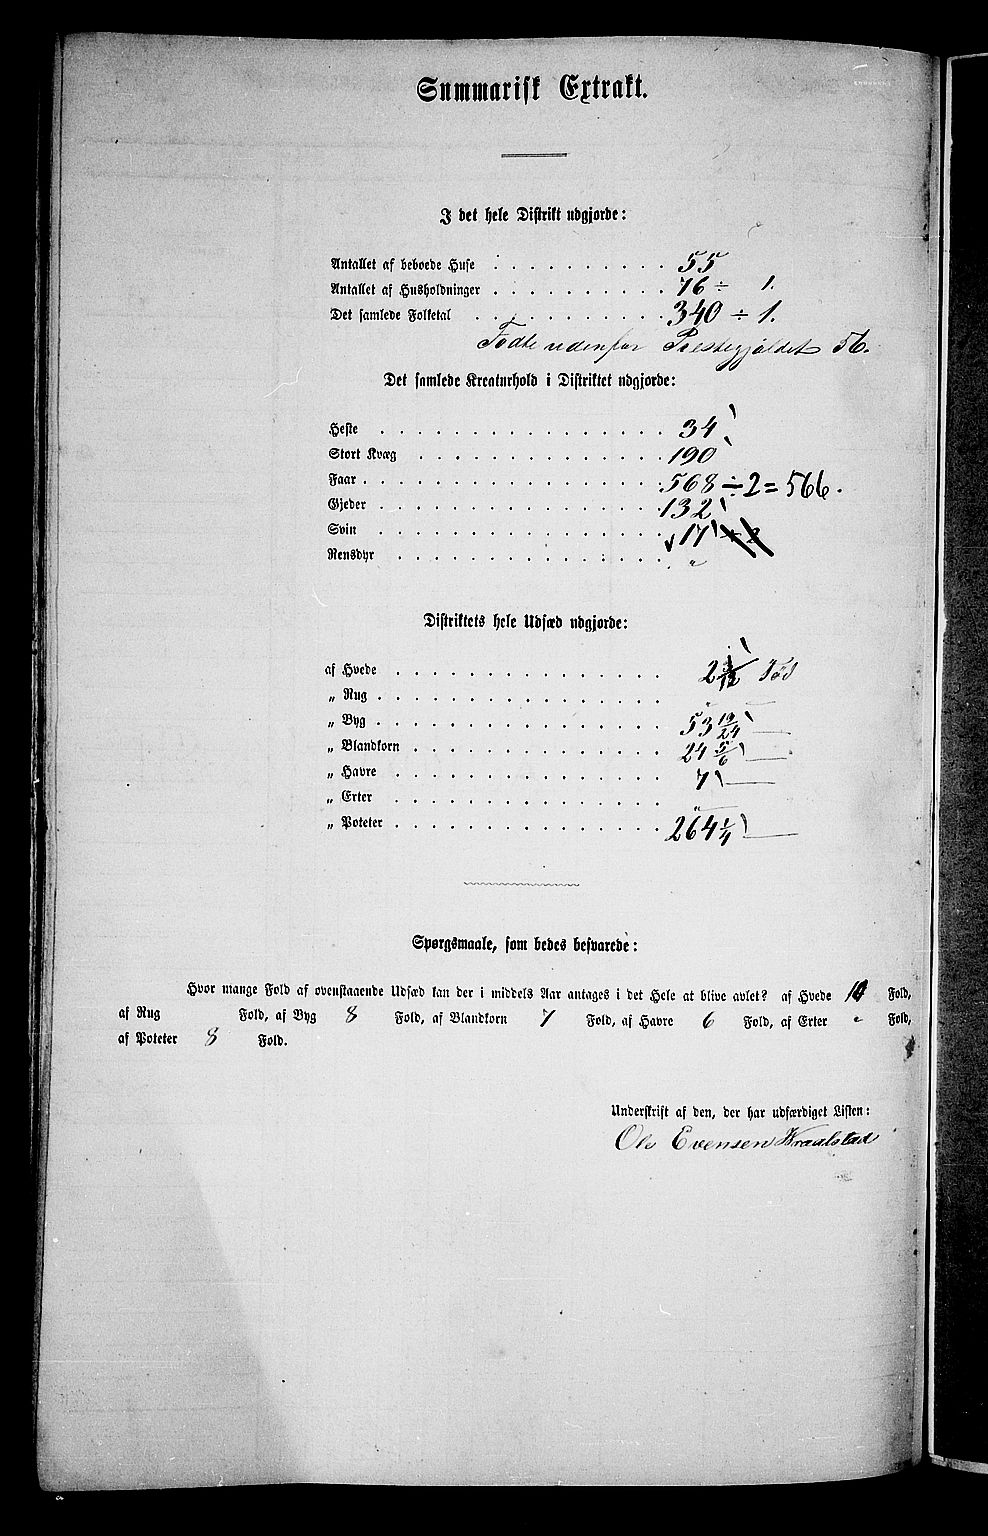 Summarisk Extrakt.
I det hele Distrikt udgjorde:
Antallet af beboede Huse . . . . . . . . . . 55
Antallet af Husholdninger . . . . . . . . . . 76 ÷ 1.
Det samlede Folketal . . . . . . . . . . . 340 ÷ 1.
Fødte udenfor Præstegjældet 56.
Det samlede Kreaturhold i Distriktet udgjorde:
Heste . . . . . . . . . . . . . . . . 34
Stort Kvæg . . . . . . . . . . . . . . 190
Faar . . . . . . . . . . . . . . . . . 568 ÷ 2 = 566.
Gjeder . . . . . . . . . . . . . . . . 132
Svin . . . . . . . . . . . . . . . . 17
Rensdyr . . . . . . . . . . . . . . . "
Distriktets hele Udsæd udgjorde:
af Hvede . . . . . . . . . . . . . . 2 Tdr
„ Rug . . . . . . . . . . . . . . . "
„ Byg . . . . . . . . . . . . . . . 53 19/24 —
„ Blandkorn . . . . . . . . . . . . . 24 5/6 —
„ Havre . . . . . . . . . . . . . . 7 —
„ Erter . . . . . . . . . . . . . . "
„ Poteter . . . . . . . . . . . . . . 264 1/4 —
Spørgsmaale, som bedes besvarede:
Hvor mange Fold af ovenstaaende Udsæd kan der i middels Aar antages i det Hele at blive avlet? af Hvede Fold,
af Rug Fold, af Byg 8 Fold, af Blandkorn 7 Fold, af Havre 6 Fold, af Erter " Fold,
af Poteter 8 Fold.
Underskrift af den, der har udfærdiget Listen:
Ole Evensen Kraalstad